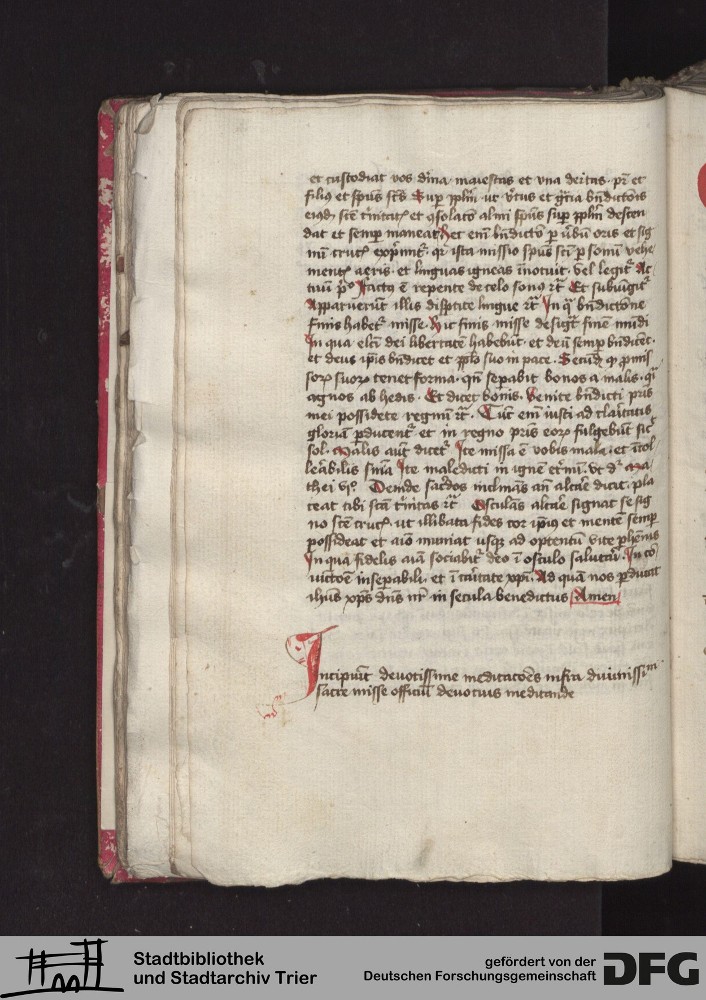 et custodiat vos diīna maiestas et vna deitas pr̄ et
filiꝰ et spūs sc̄s Sup pplm̄ ut v̄tus et gr̄cia bn̄dictōis
eiꝰdē sc̄e t̄nitatꝭ et ꝯsolatō almi spūs sup pplm̄ descen
dat et semp maneat Nec em̄ bn̄dictō p v̄bū oris et sig
nū crucꝭ exp̄mit᷑ qr ista missio spūs sc̄i p sonū vehe
mentꝭ aeris et linguas igneas īnotuit vel legit᷑ Ac
tuū pº factꝰ ē repente de celo sonꝰ rc̄ Et subiūgit᷑
Apparuerūt illis disptite lingue rc̄ In q̄ bn̄dictōne
finis habet᷑ misse Hic finis misse desiḡt finē mūdi
In qua elc̄i dei libertatē habebūt et deū semp bn̄dicēt
et deus ip̄is bn̄dicet et pplo suo in pace Secūdū q̄ p̄mis
soꝝ suoꝝ tenet forma qn̄ sepabit bonos a malis qͥ
agnos ab hedis Et dicet bonis Venite bn̄dicti pr̄is
mei possidete regnū rc̄ Tūc em̄ iusti ad claritatis
gloriā pducent᷑ et in regno pr̄is eoꝝ fulgebūt sic᷑
sol Malis aūt dicet᷑ Ite missa ē vobis mala et ītol
lerābilis sn̄ia Ite maledicti in ignē et̄nū vt dr̄ Ma
thei viº Deinde sac̄dos inclināns an̄ altare dicit pla
ceat tibi sc̄a t̄nitas rc̄ Osculāns altare signat se sig
no sc̄e crucꝭ ut illibata fides cor ip̄ius et mentē semp
possideat et aīo muniat usqꝫ ad optentū vite phēnis
In qua fidelis aīa sociabit᷑ deo ī osculo salutari In cō
iūctōe inseparabili et ī caritate xp̄i Ad quā nos pducat
ihūs xp̄s dn̄s nr̄ in secula benedictus Amen
Incipiūt deuotissime meditacōes infra diuinissīm
sacre misse officiū deuocius meditande
Stadtbibliothek
und Stadtarchiv Trier
gefördert von der
Deutschen Forschungsgemeinschaft
DFG